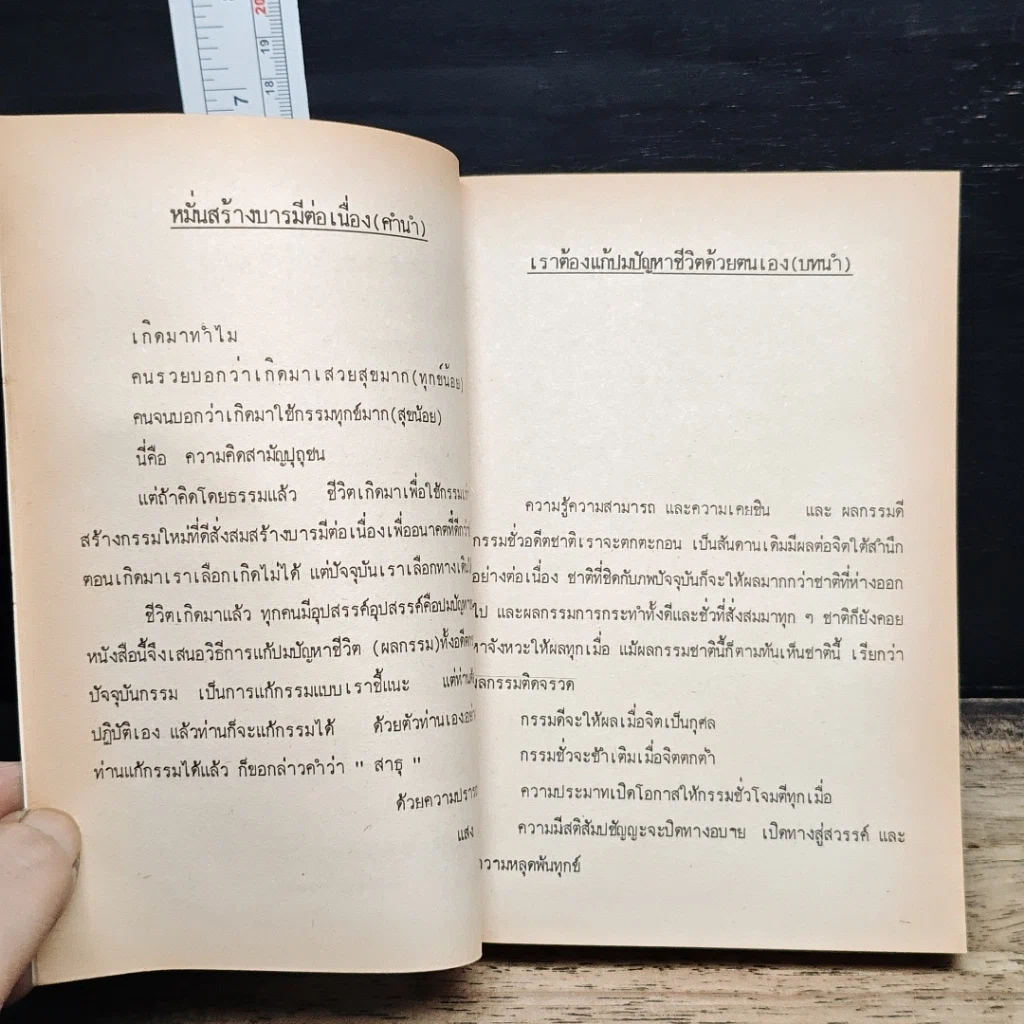 20
19
18
7
หมั่นสร้างบารมีต่อเนื่อง(คำนำ)
เกิดมาทำไม
คนรวยบอกว่าเกิดมาเสวยสุขมาก(ทุกข์น้อย)
คนจนบอกว่าเกิดมาใช้กรรมทุกข์มาก(สุขน้อย)
นี่คือ ความคิดสามัญปุถุชน
แต่ถ้าคิดโดยธรรมแล้ว ชีวิตเกิดมาเพื่อใช้กรรม
สร้างกรรมใหม่ที่ดีสั่งสมสร้างบารมีต่อเนื่องเพื่ออนาคตที่ดีกว่า
ตอนเกิดมาเราเลือกเกิดไม่ได้ แต่ปัจจุบันเราเลือกทาง
ชีวิตเกิดมาแล้ว ทุกคนมีอุปสรรค์อุปสรรค์คือปมปัญหา
หนังสือนี้จึงเสนอวิธีการแก้ปมปัญหาชีวิต (ผลกรรม)ทั้ง
ปัจจุบันกรรม เป็นการแก้กรรมแบบเราชี้แนะ แต่ท่าน
ปฏิบัติเอง แล้วท่านก็จะแก้กรรมได้ ด้วยตัวท่านเอง
ท่านแก้กรรมได้แล้ว ก็ขอกล่าวคำว่า " สาธุ "
ด้วยความ
แสง
เราต้องแก้ปมปัญหาชีวิตด้วยตนเอง(บทนำ)
ความรู้ความสามารถ และความเคยชิน และ ผลกรรมดี
กรรมชั่วอดีตชาติเราจะตกตะกอน เป็นสันดานเดิมมีผลต่อจิตใต้สำนึก
อย่างต่อเนื่อง ชาติที่ชิดกับภพปัจจุบันก็จะให้ผลมากกว่าชาติที่ห่างออก
ไป และผลกรรมการกระทำทั้งดีและชั่วที่สั่งสมมาทุก ๆ ชาติก็ยังคอย
หาจังหวะให้ผลทุกเมื่อ แม้ผลกรรมชาตินี้ก็ตามทันเห็นชาตินี้ เรียกว่า
ผลกรรมติดจรวด
กรรมดีจะให้ผลเมื่อจิตเป็นกุศล
กรรมชั่วจะซ้ำเติมเมื่อจิตตกต่ำ
ความประมาทเปิดโอกาสให้กรรมชั่วโจมตีทุกเมื่อ
ความมีสติสัมปชัญญะจะปิดทางอบาย เปิดทางสู่สวรรค์ และ
ความหลุดพ้นทุกข์